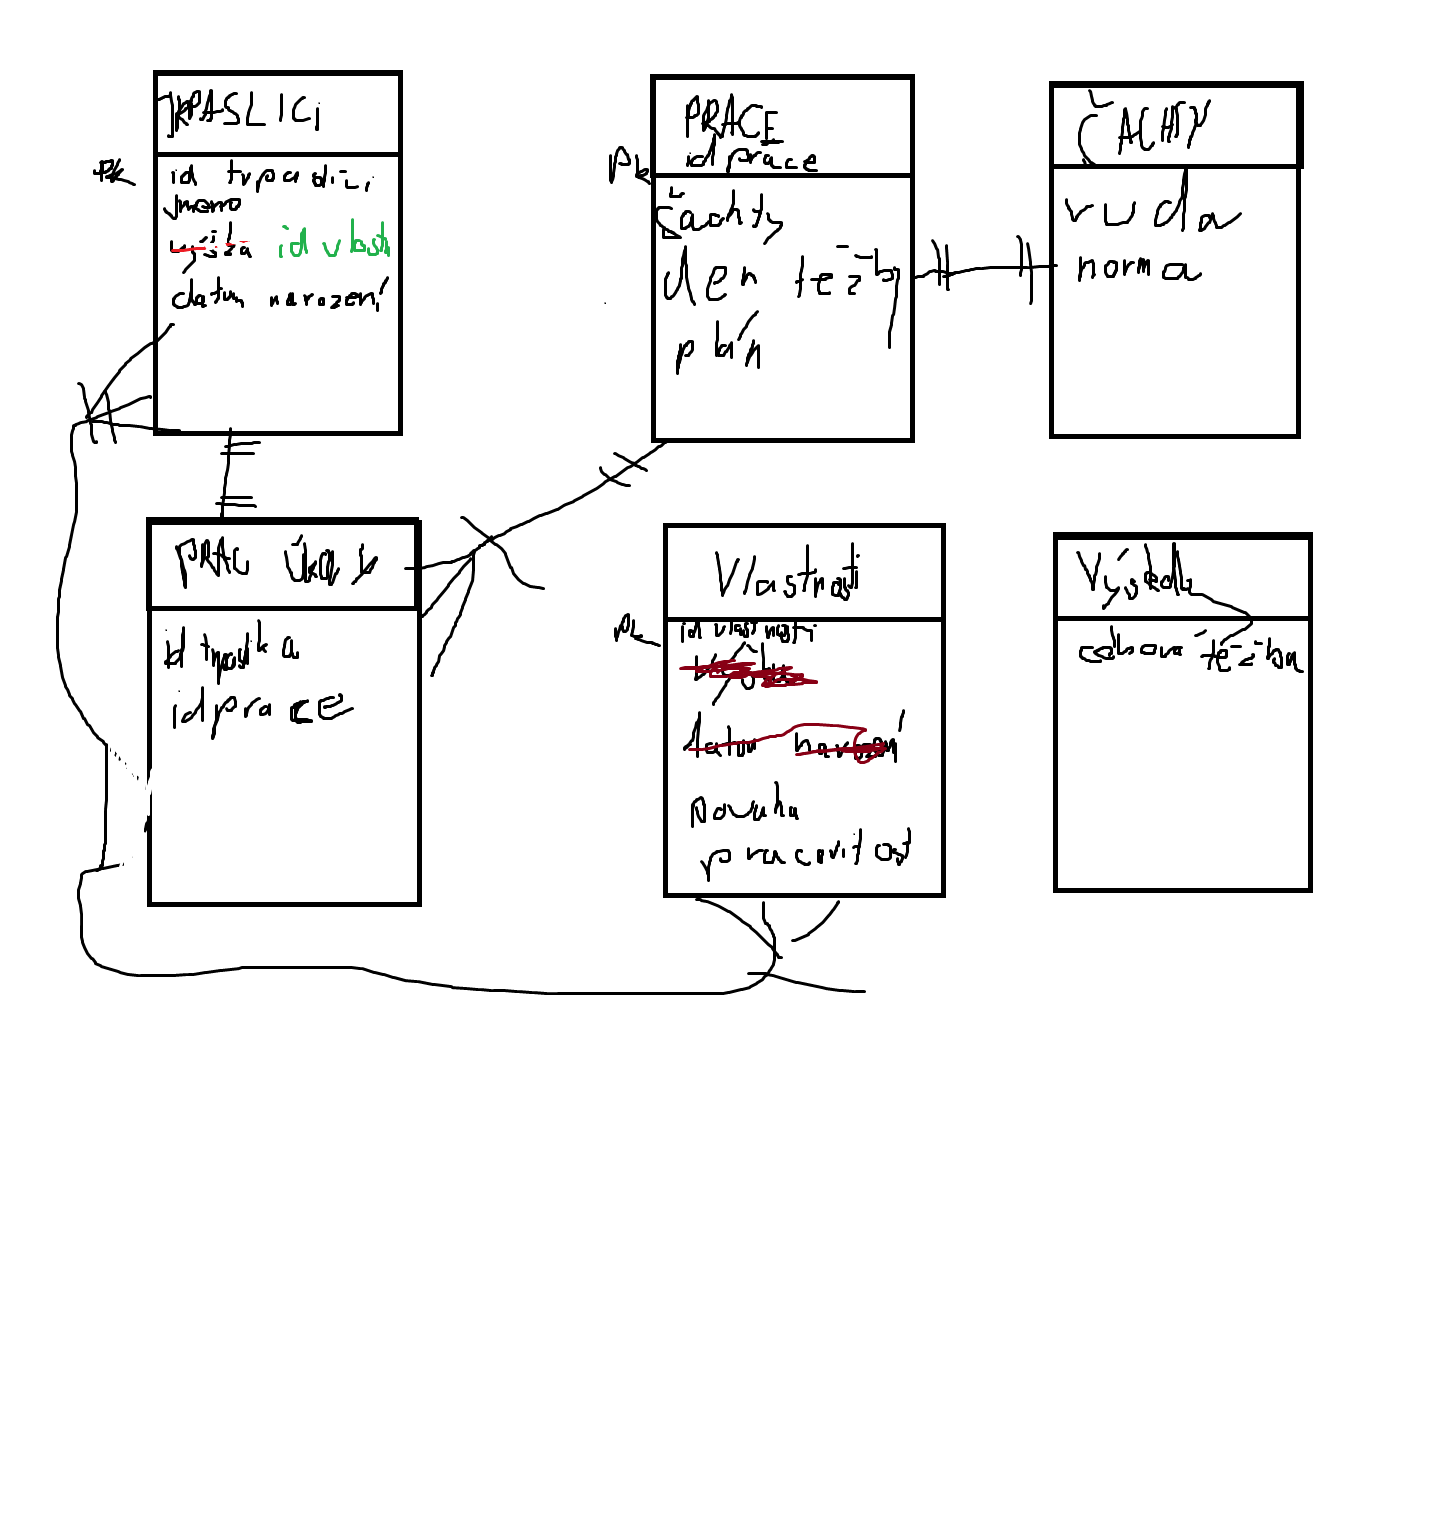 TRPASLICI
Pk
id trpaslici
jmeno
výška id vlastn
datum narození
PRACE
id prace
Pk
čachty
den težby
plán
ČACHTY
ruda
norma
PRAC ÚKOLY
id trpaslika
id prace
Vlastnosti
PK
id vlastnosti
datum narození
povaha
pracovitost
Výsledky
celkova težba